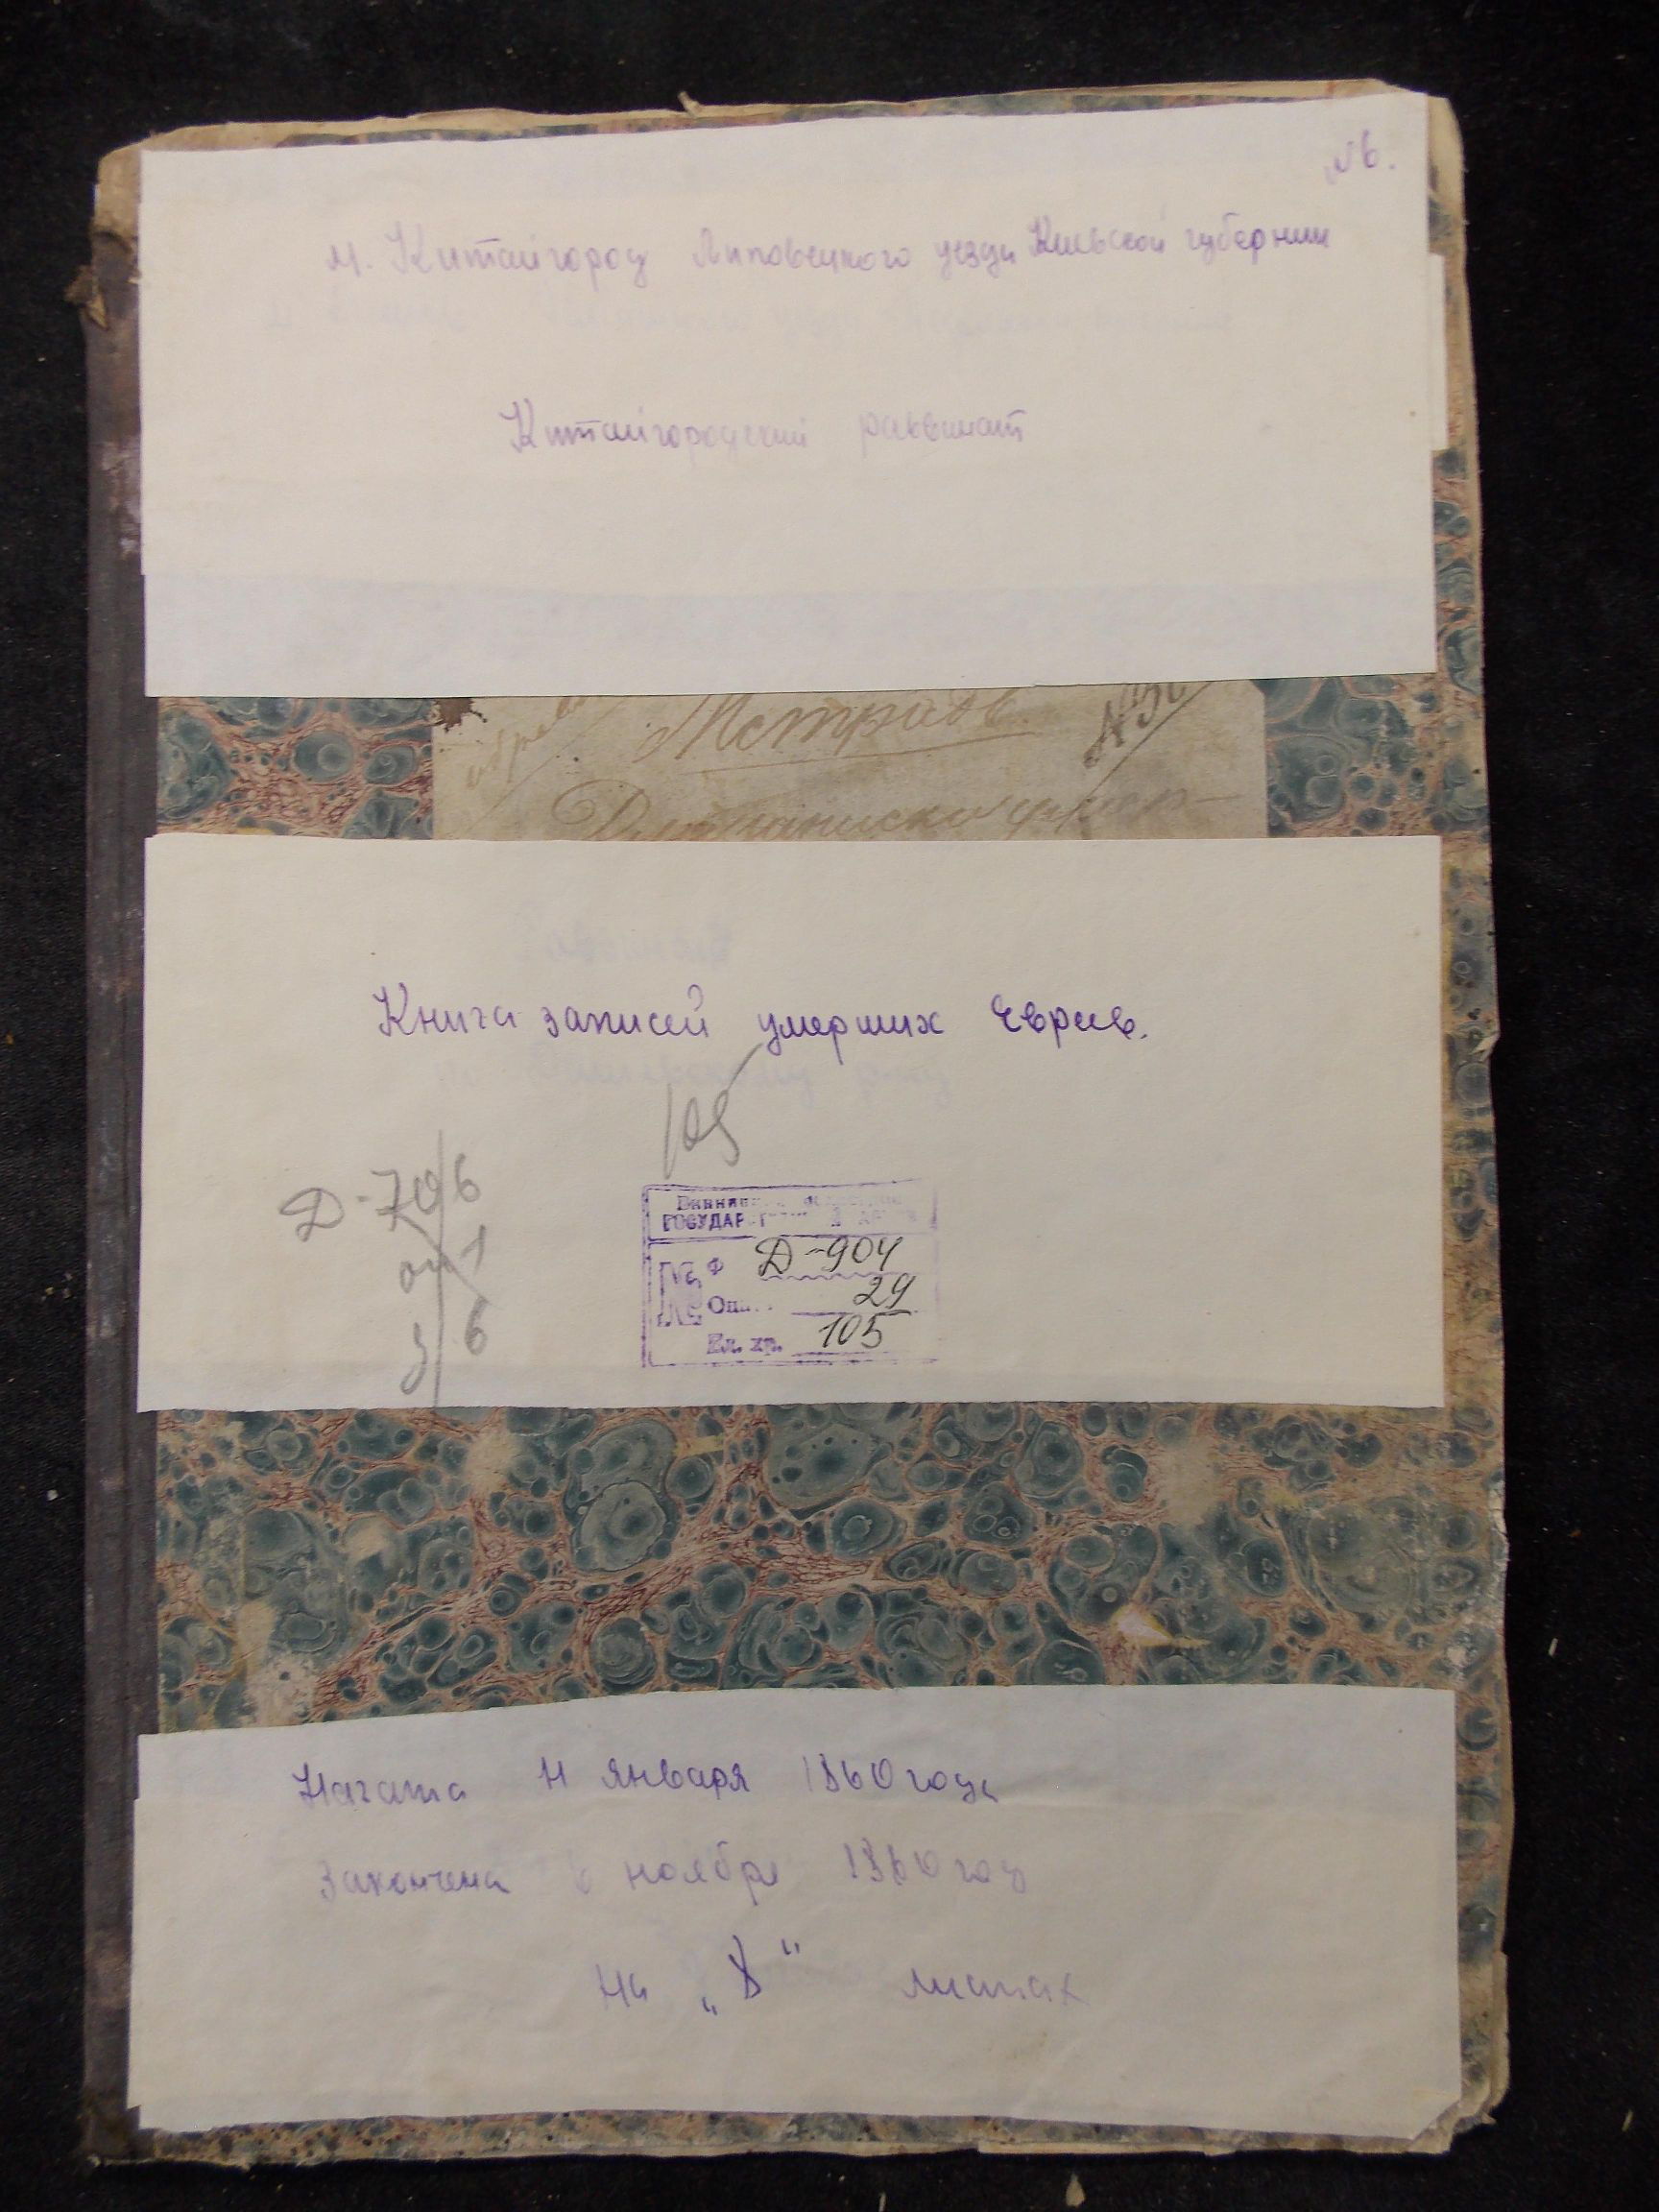 №6.
м. Китайгород Липовецкого уезда Киевской губернии
Китайгородский раввинат
№
Книга записей умерших Евреев.
105
Д-706
оп 1
6
ГОСУДАР
№№ Ф Д-904
Оп. 29
Ед. хр. 105
Начата 11 января 1860 года
Закончена 6 ноября 1860 год
на „8“ листах